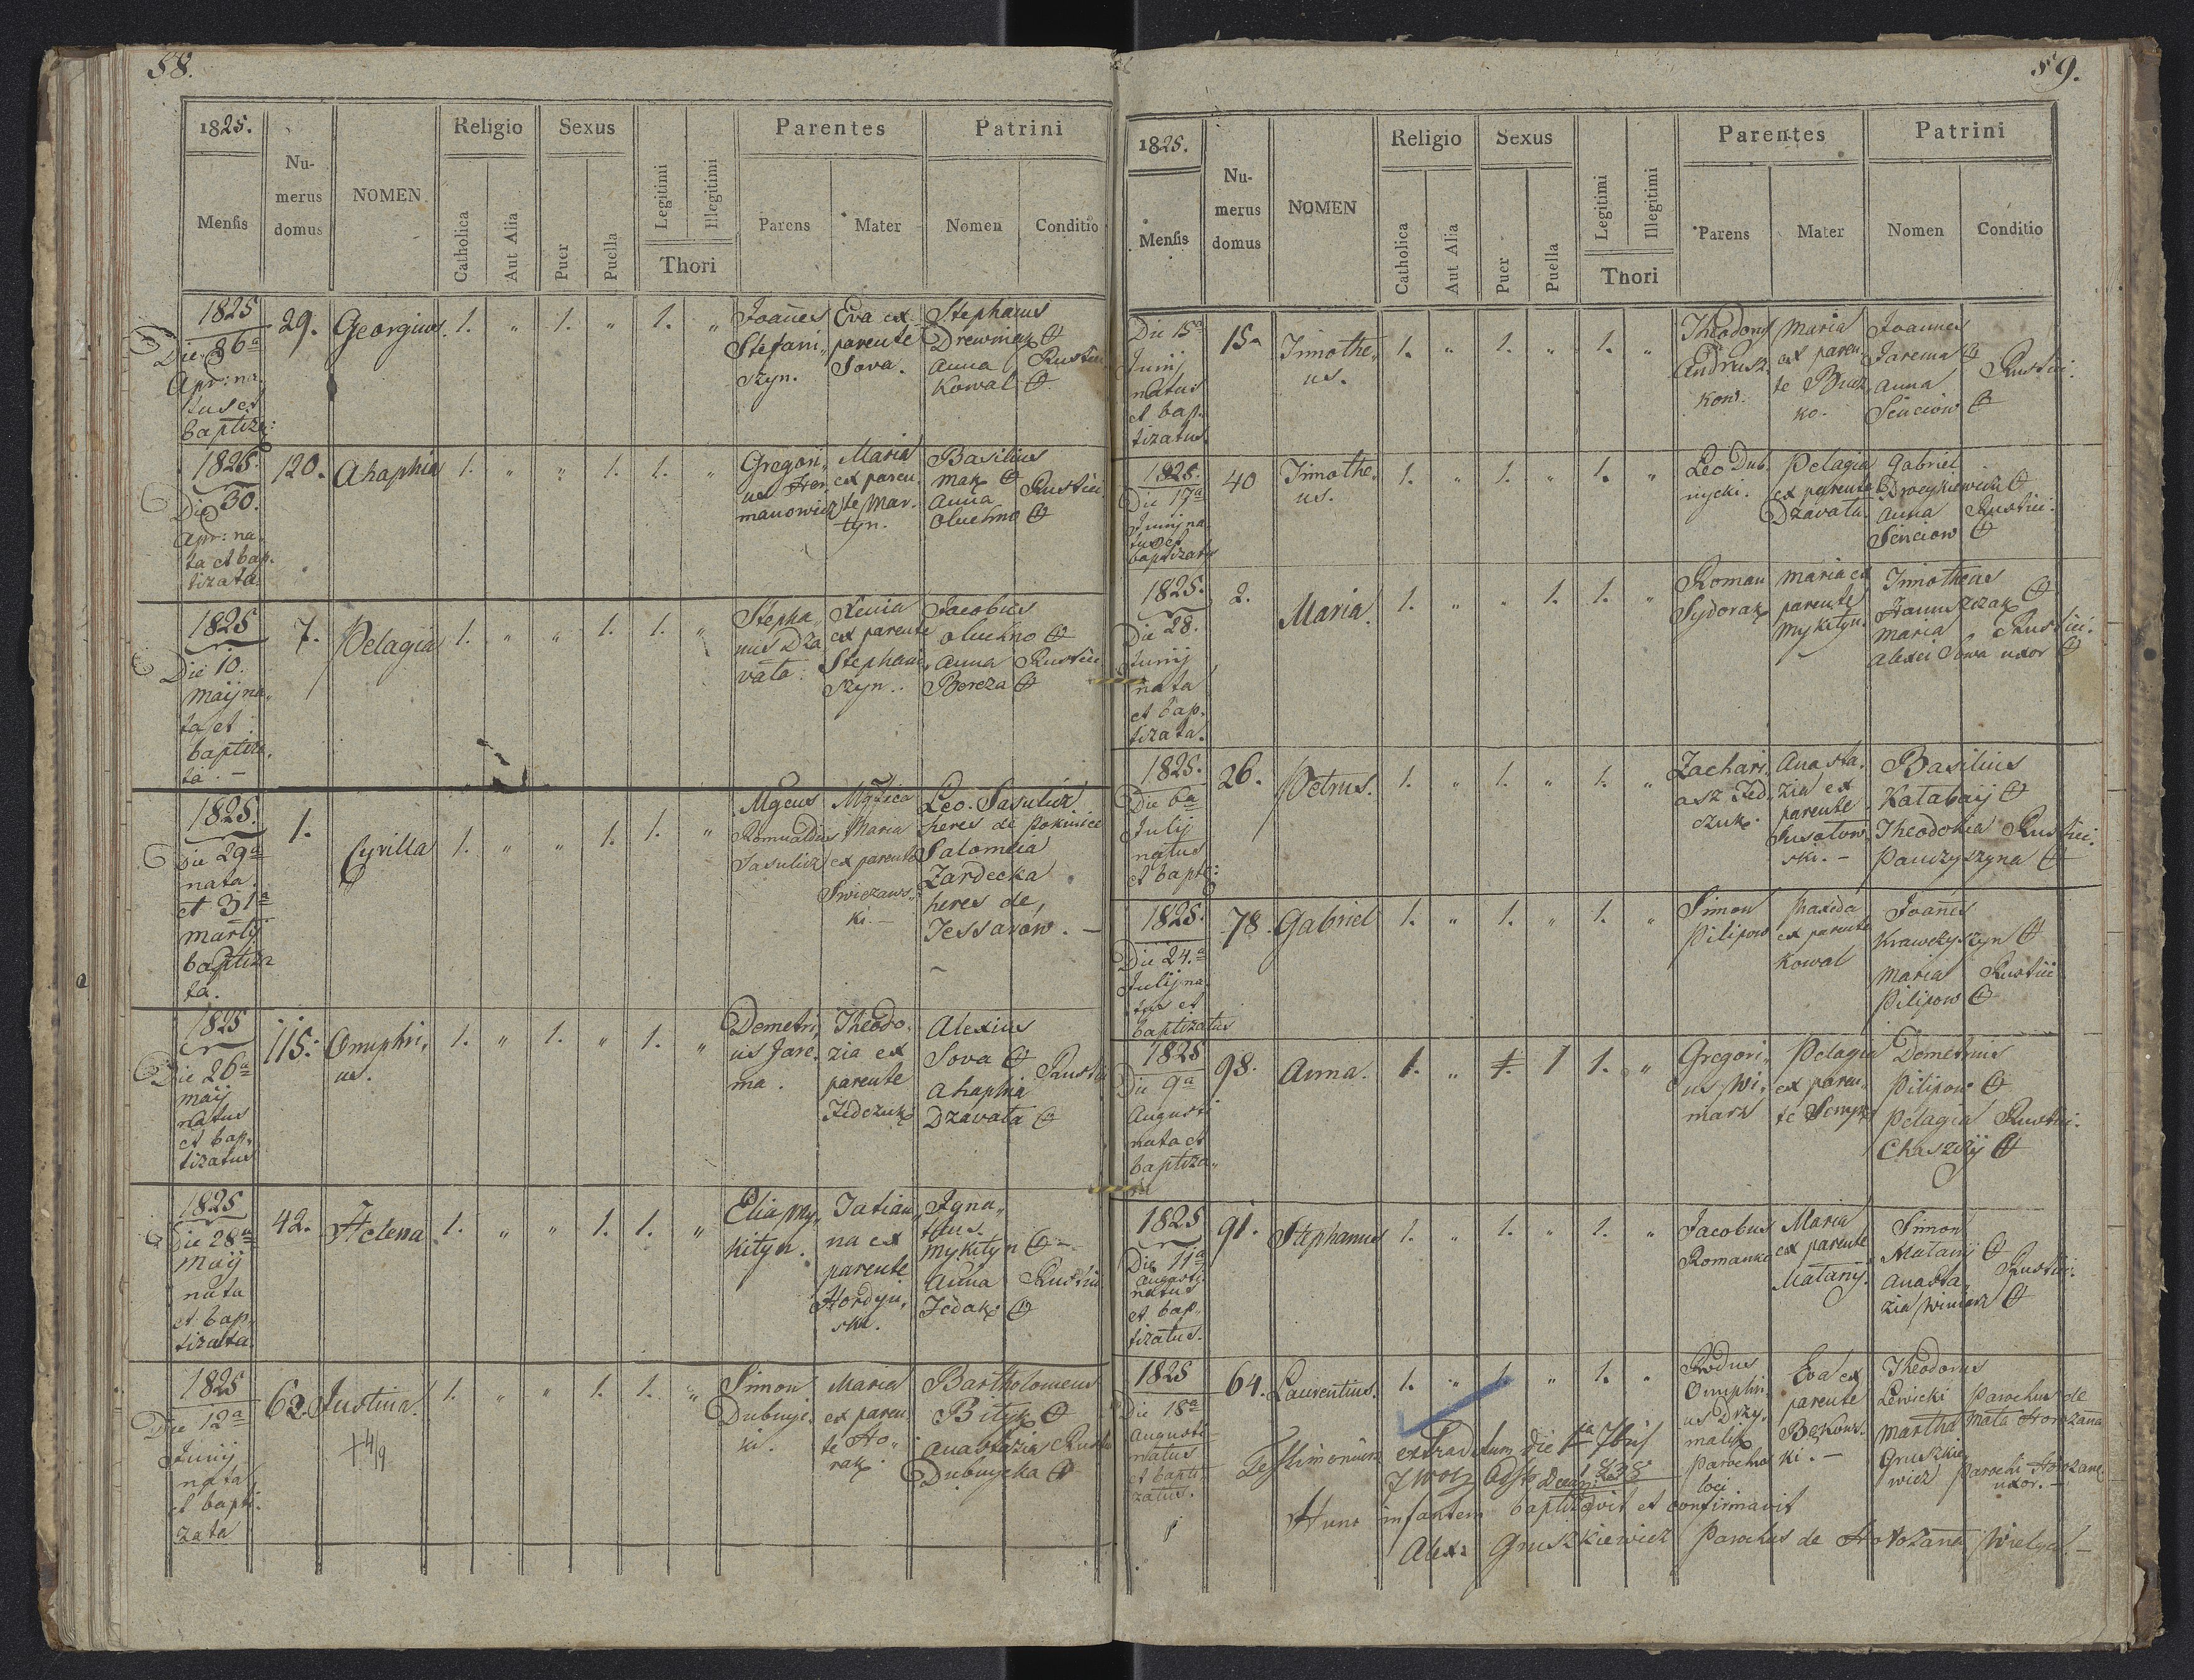 58.
1825.
Mensis
Nu-
merus
domus
NOMEN
Religio
Catholica
Aut Alia
Sexus
Puer
Puella
Legitimi
Illegitimi
Thori
Parentes
Parens
Mater
Patrini
Nomen
Conditio
1825
Die
Apr: na
tus et
baptiza:
29.
Georgius
1. " 1. " 1. "
Joañes
Stefani„
szyn.
Eva ex
parente
Sova.
Stephanus
Drewniak
Anna
Kowal
Rustici
1825.
Die 30.
Apr: na
ta et bap.
tizata.
120.
Ahaphia
1. " " 1. 1. "
Gregori„
us
manowicz
Maria
ex paren„
te Mar.
tyn.
Basilius
Mak
Anna
Oluchno
Rustici
1825
Die 10.
Maij na„
ta et
baptiza.
ta. –
7.
Pelagia
1. " " 1. 1. "
Stepha„
nus Dza
vata.
Xenia
ex parente
Stephani„
szyn.
Jacobus
Oluchno
Anna
Bereza
Rustici
1825.
Die 29a
nata
et 31a
Martij
baptiza
ta.
1.
Cyrilla
1. " " 1. 1. "
Romualdus
Sasulicz
Maria
ex parente
ki. –
Leo. Sasulicz
heres de
Salomeia
Zardecka
heres de
Tessarow. –
1825
Die 26a
Maij
natus
et bap„
tizatus
115.
Onuphri„
us.
1. " 1. " 1. "
Demetri„
us Jare„
ma.
Theodo„
zia ex
parente
Fedczuk
Alexius
Sova
Ahaphia
Dzavata
Rustici
1825
Die 28a
Maij
nata
et bap„
tizata.
42.
Helena
1. " " 1. 1. "
Elias My„
kityn.
Tatian„
na ex
parente
Hordyn„
ska.
Igna„
tius
Mykityn
Anna
Fedak
Rustici
1825
Die 12a
Junij
nata
et bapti„
zata
62.
Justina.
+ 4/9
1. " " 1. 1. "
Simon
Dubnyc
ki.
Maria
ex paren
te Ho„
rak.
Bartholomeus
Bityk
Anastazia
Dubnycka
Rustici
59.
1825.
Mensis
Nu-
merus
domus
NOMEN
Religio
Catholica
Aut Alia
Sexus
Puer
Puella
Legitimi
Illegitimi
Thori
Parentes
Parens
Mater
Patrini
Nomen
Conditio
Die 15a
Junij
natus
et bap.
tizatus.
15.
Timothe„
us.
1. " 1. " 1. "
Theodorus
Andrusz
kow.
Maria
ex paren„
te
ko.
Joannes
Jarema
Anna
Senciow
Rustici.
1825.
Die 17a
Junij na
tus et
baptizatus
40
Timothe„
us.
1. " 1. " 1. "
Leo Dub„
nycki.
Pelagia
ex parente
Dzavata.
Gabriel
Anna
Senciow
Rustici.
1825.
Die 28.
Junij
nata
et bap„
tizata.
2.
Maria
1. " " 1. 1. "
Roman
Sydorak
Maria ex
parente
Mykityn.
Timotheus
Hanuszczak
Maria
Alexei Sowa uxor
Rustici.
1825.
Die 6a
Julij
natus
et bapti:
26.
Petrus.
1. " 1. " 1. "
Zachari„
asz Fed„
czuk.
Anasta„
zia ex
parente
ski. –
Basilius
Katabaij
Theodozia
Panczyszyna
Rustici.
1825.
Die 24.a
Julij na
tus et
baptizatus
78.
Gabriel
1. " 1. " 1. "
Simon
Pilipow
ex parente
Kowal
Joañes
Krawczyszyn
Maria
Pilipow
Rustici
1825
Die 9a
Augusti
nata et
baptiza„
ta
98.
Anna.
1. " 1. 1 1. "
Gregori„
us Wi„
marz
Pelagia
ex paren„
te
Demetrius
Pilipow
Pelagia
Chaszczij
Rustici.
1825
Die 11a
Augusti
natus
et bap.
tizatus.
91.
Stephanus
1. " 1. " 1. "
Jacobus
Romanko
Maria
ex parente
Matany.
Simon
Matanij
Anasta„
zia Winiarz
Rustici.
1825
Die 18a
Augusti
natus
et bapti„
zatus.
64.
Laurentius.
1. " 1. " 1. "
Onuphri„
us Drzy„
malik
Parochus
loci
Eva ex
parente
ki. –
Theodorus
Lewicki
Martha
Gruszkie
wicz
Parochus de
Mała Horozanna
Parochi Horozane
uxor. –
Testimonium extraditum die
Hunc infantem baptizavit et confirmavit
Alex: Gruszkiewicz Parochus de Horozanna Wielga. –